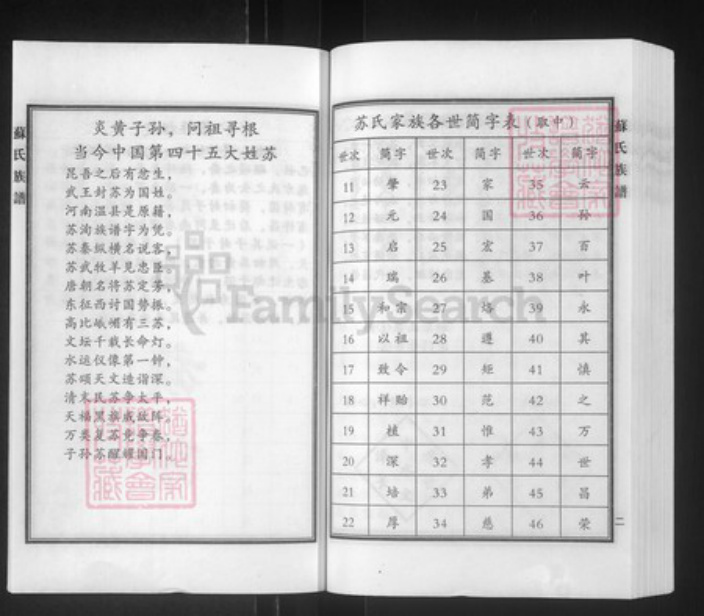 蘇氏族譜
炎黄子孙，问祖寻根
当今中国第四十五大姓苏
昆吾之后有忿生，
武王封苏为国姓。
河南温县是原籍，
苏洵族谱字为凭。
苏秦纵横名说客，
苏武牧羊见忠臣。
唐朝名将苏定芳，
东征西讨国势振。
高比峨嵋有三苏，
文坛千载长命灯。
水运仪像第一钟，
苏颂天文造诣深。
清末民苏争太平，
天福黑旗威敌阵。
万类复苏竞争春，
子孙苏醒耀国门。
FamilySearch
蘇氏族譜
苏氏家族各世简字表（取中）
世次 简字 世次 简字 世次 简字
11 肇 23 家 35 云
12 元 24 国 36 孙
13 启 25 宏 37 百
14 瑞 26 基 38 叶
15 和宗 27 烙 39 永
16 以祖 28 遵 40 其
17 致令 29 矩 41 慎
18 祥贻 30 范 42 之
19 植 31 惟 43 万
20 深 32 孝 44 世
21 培 33 弟 45 昌
22 厚 34 慈 46 荣
二